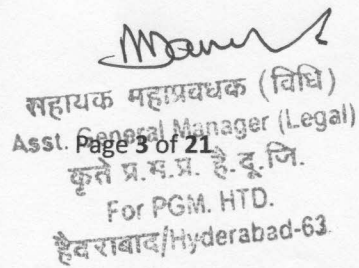 सहायक महाप्रबंधक (विधि)
Asst. General Manager (Legal)
Page 3 of 21
कृते प्र.म.प्र. है.दू.जि.
For PGM. HTD.
हैदराबाद/Hyderabad-63.